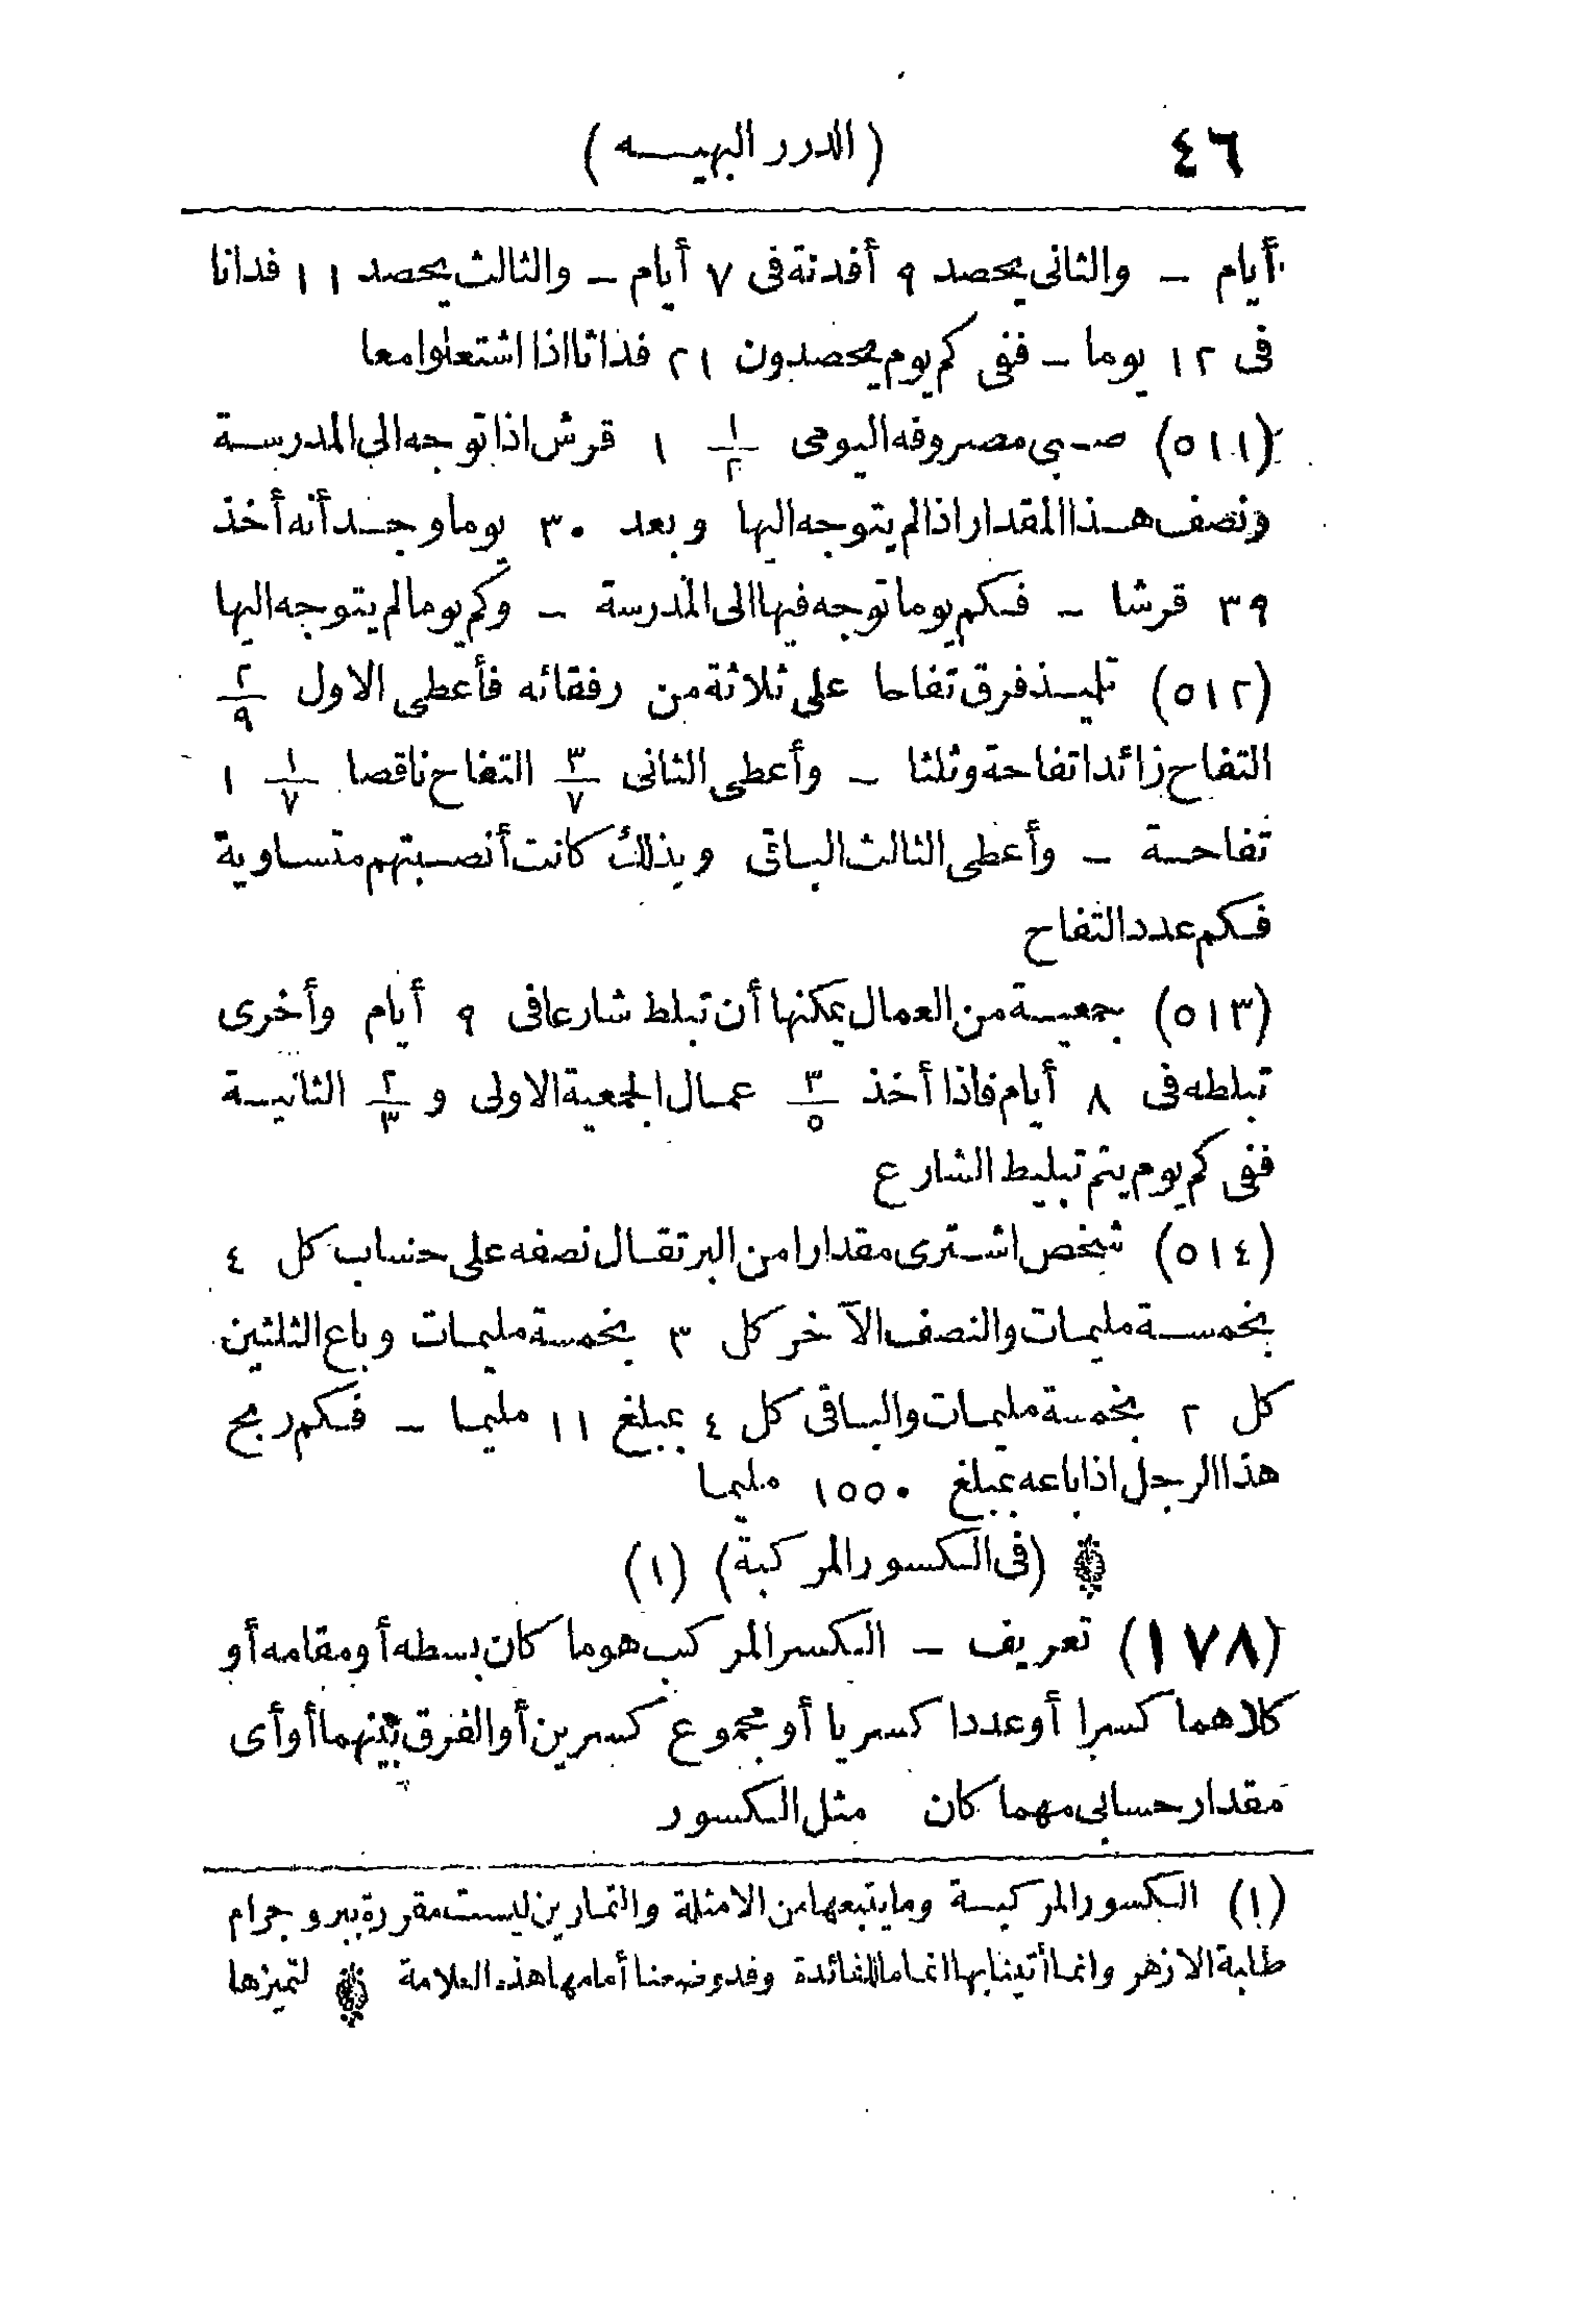 ٤٦ (الدرر البهيسه)
أيام – والثانى يحصد ٩ أفدنة فى ٧ أيام – والثالث يحصد ١١ فدانا
فى ١٢ يوما – ففى كم يوم يحصدون ٢١ فدانا اذا اشتغلوا معا
(٥١١) صبى مصروفه اليومى ١/٢ ١ قرش اذا توجه الى المدرسة
ونصف هذا المقدار اذا لم يتوجه اليها وبعد ٣٠ يوما وجد أنه أخذ
٣٩ قرشا – فكم يوما توجه فيها الى المدرسة – وكم يوما لم يتوجه اليها
(٥١٢) تلميذ فرق تفاحا على ثلاثة من رفقائه فأعطى الاول ٢/٩
التفاح زائدا تفاحة وثلثا – وأعطى الثانى ٣/٧ التفاح ناقصا ١/٧ ١
تفاحة – وأعطى الثالث الباقى وبذلك كانت أنصبتهم متساوية
فكم عدد التفاح
(٥١٣) جمعية من العمال يمكنها أن تبلط شارعا فى ٩ أيام وأخرى
تبلطه فى ٨ أيام فاذا أخذ ٣/٥ عمال الجمعية الاولى و ٢/٣ الثانية
ففى كم يوم يتم تبليط الشارع
(٥١٤) شخص اشترى مقدارا من البرتقال نصفه على حساب كل ٤
بخمسة مليمات والنصف الآخر كل ٣ بخمسة مليمات وباع الثلثين
كل ٢ بخمسة مليمات والباقى كل ٤ بمبلغ ١١ مليما – فكم ربح
هذا الرجل اذا باعه بمبلغ ١٥٥٠ مليما
(فى الكسور المركبة) (١)
(١٧٨) تعريف – الكسر المركب هو ما كان بسطه أو مقامه أو
كلاهما كسرا أو عددا كسريا أو مجموع كسرين أو الفرق بينهما أو أى
مقدار حسابى مهما كان مثل الكسور
(١) الكسور المركبة وما يتبعها من الامثلة والتمارين ليست مقررة ببروجرام
طلبة الازهر وانما أتينا بها اتماما للفائدة وقد وضعنا أمامها هذه العلامة لتميزها